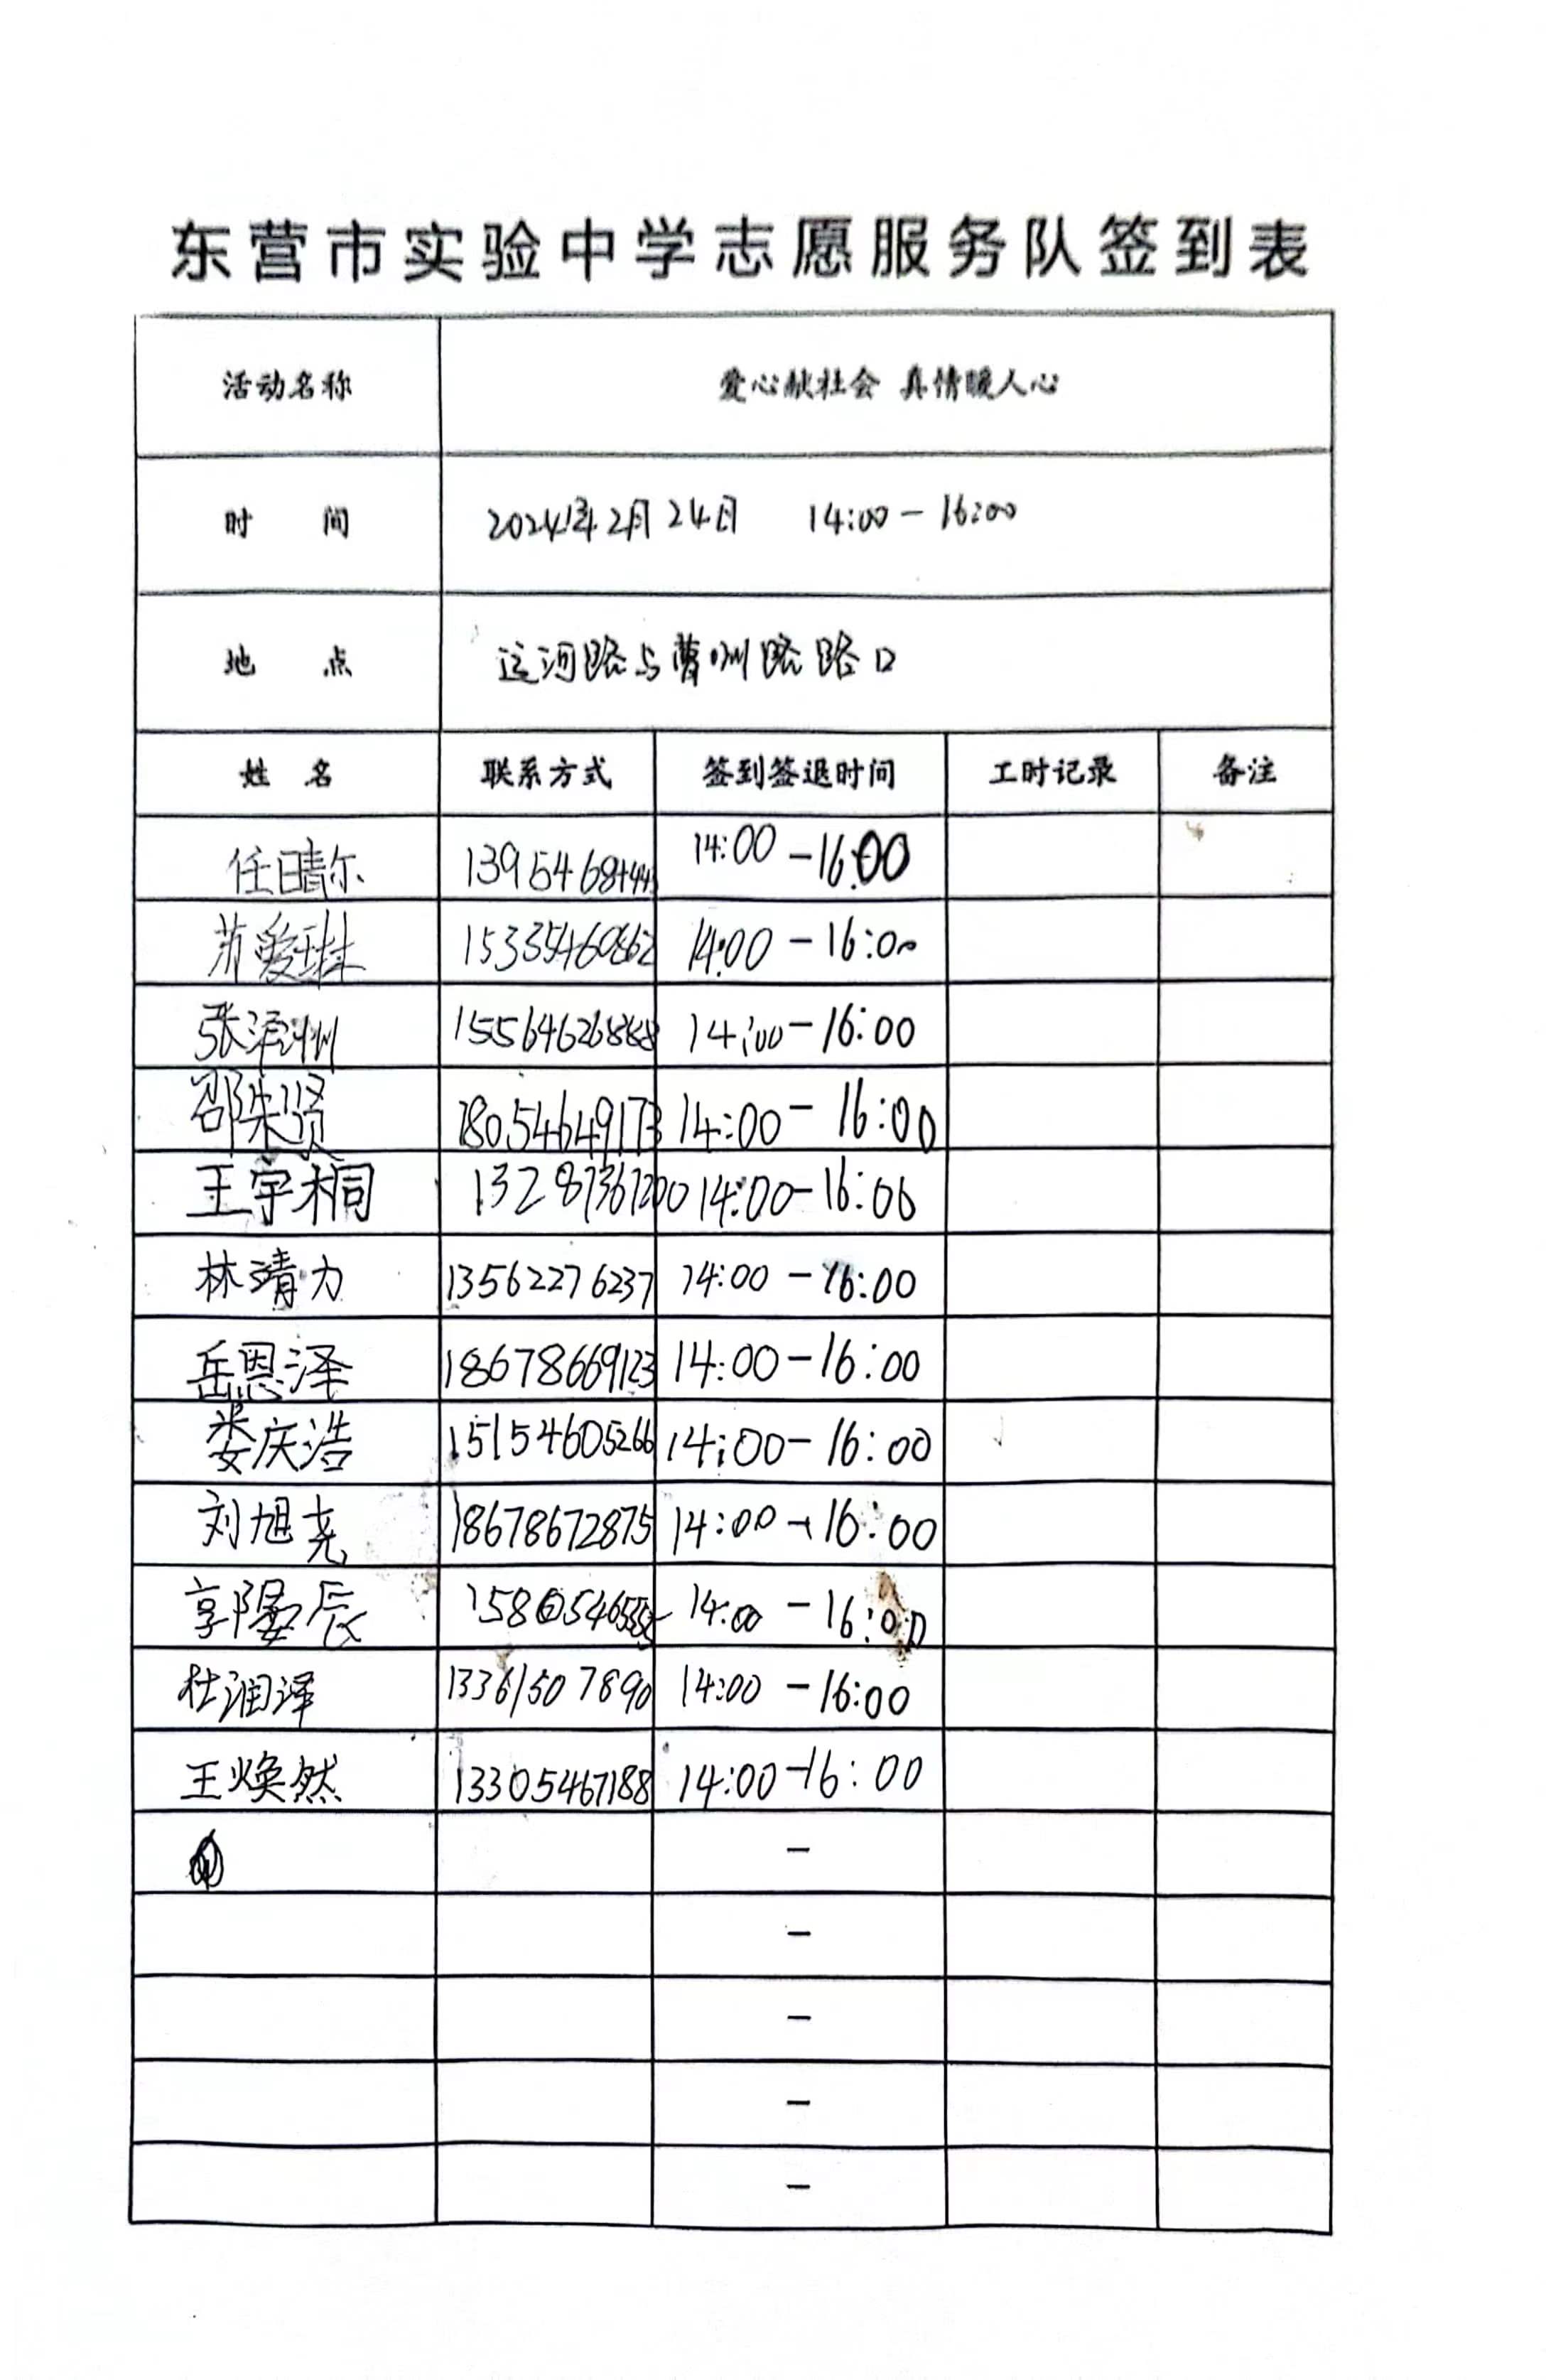 东营市实验中学志愿服务队签到表
活动名称 爱心献社会 真情暖人心
时 间 2024年2月24日 14:00-16:00
地 点 运河路与曹州路路口
姓 名 联系方式 签到签退时间 工时记录 备注
任晴尔 14:00-16:00
苏爱琳 15335460862 14:00-16:00
张泽州 15564626888 14:00-16:00
邵朱贤 18054649173 14:00-16:00
王宇桐 13287367200 14:00-16:00
林靖力 13562276237 14:00-16:00
岳恩泽 18678669123 14:00-16:00
娄庆浩 15154605266 14:00-16:00
刘旭尧 18678672875 14:00-16:00
郭晏辰 14:00-16:00
杜润泽 13361507890 14:00-16:00
王焕然 13305467188 14:00-16:00
-
-
-
-
-